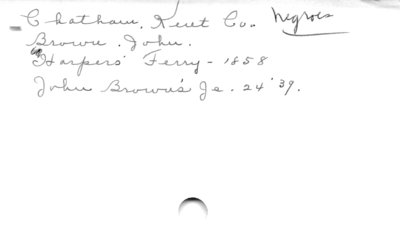 Chatham. Kent Co. Negroes
Brown, John.
Harpers' Ferry - 1858
John Brown's Je. 24 '39.